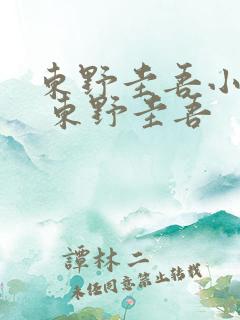 東野圭吾小
東野圭吾
譚林二
未经同意禁止转载